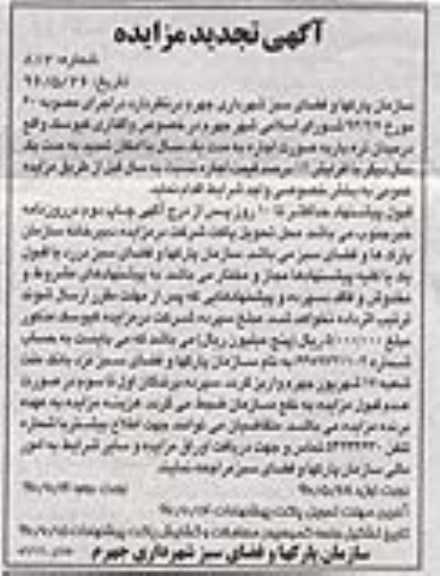 آگهی تجدید مزایده
شماره: ۸۱۳
تاریخ:
سازمان پارکها و فضای سبز شهرداری جهرم درنظردارد دراجرای مصوبه ۶۰
مورخ شورای اسلامی شهر جهرم در خصوص واگذاری کیوسک واقع
درمیدان تره بار به صورت اجاره به مدت یک سال با امکان تمدید به مدت یک
سال دیگر با افزایش قیمت اجاره نسبت به سال قبل از طریق مزایده
عمومی به بخش خصوصی واجد شرایط اقدام نماید.
قبول پیشنهاد حداکثر تا ۱۰ روز پس از درج آگهی چاپ دوم درروزنامه
خبرجنوب می باشد. محل تحویل پاکت شرکت درمزایده، دبیرخانه سازمان
پارک ها و فضای سبز می باشد. سازمان پارکها و فضای سبز دررد یا قبول
یک یا کلیه پیشنهادها مجاز و مختار می باشد. به پیشنهادهای مشروط و
مخدوش و فاقد سپرده و پیشنهادهایی که پس از مهلت مقرر ارسال شوند
ترتیب اثرداده نخواهد شد. مبلغ سپرده شرکت درمزایده کیوسک مذکور
مبلغ ۵/۰۰۰/۰۰۰ ریال (پنج میلیون ریال) می باشد که می بایست به حساب
شماره به نام سازمان پارکها و فضای سبز نزد بانک ملت
شعبه ۱۷ شهریور جهرم واریز گردد. سپرده برندگان اول تا سوم در صورت
عدم قبول مزایده، به نفع سازمان ضبط می گردد. هزینه مزایده به عهده
برنده مزایده می باشد. متقاضیان می توانند جهت اطلاع بیشتر با شماره
تلفن تماس و جهت دریافت اوراق مزایده و سایر شرایط به امور
مالی سازمان پارکها و فضای سبز مراجعه نمایند.
نوبت اول: نوبت دوم:
آخرین مهلت تحویل پاکت پیشنهادات:
تاریخ تشکیل جلسه کمیسیون معاملات و گشایش پاکت پیشنهادات:
سازمان پارکها و فضای سبز شهرداری جهرم